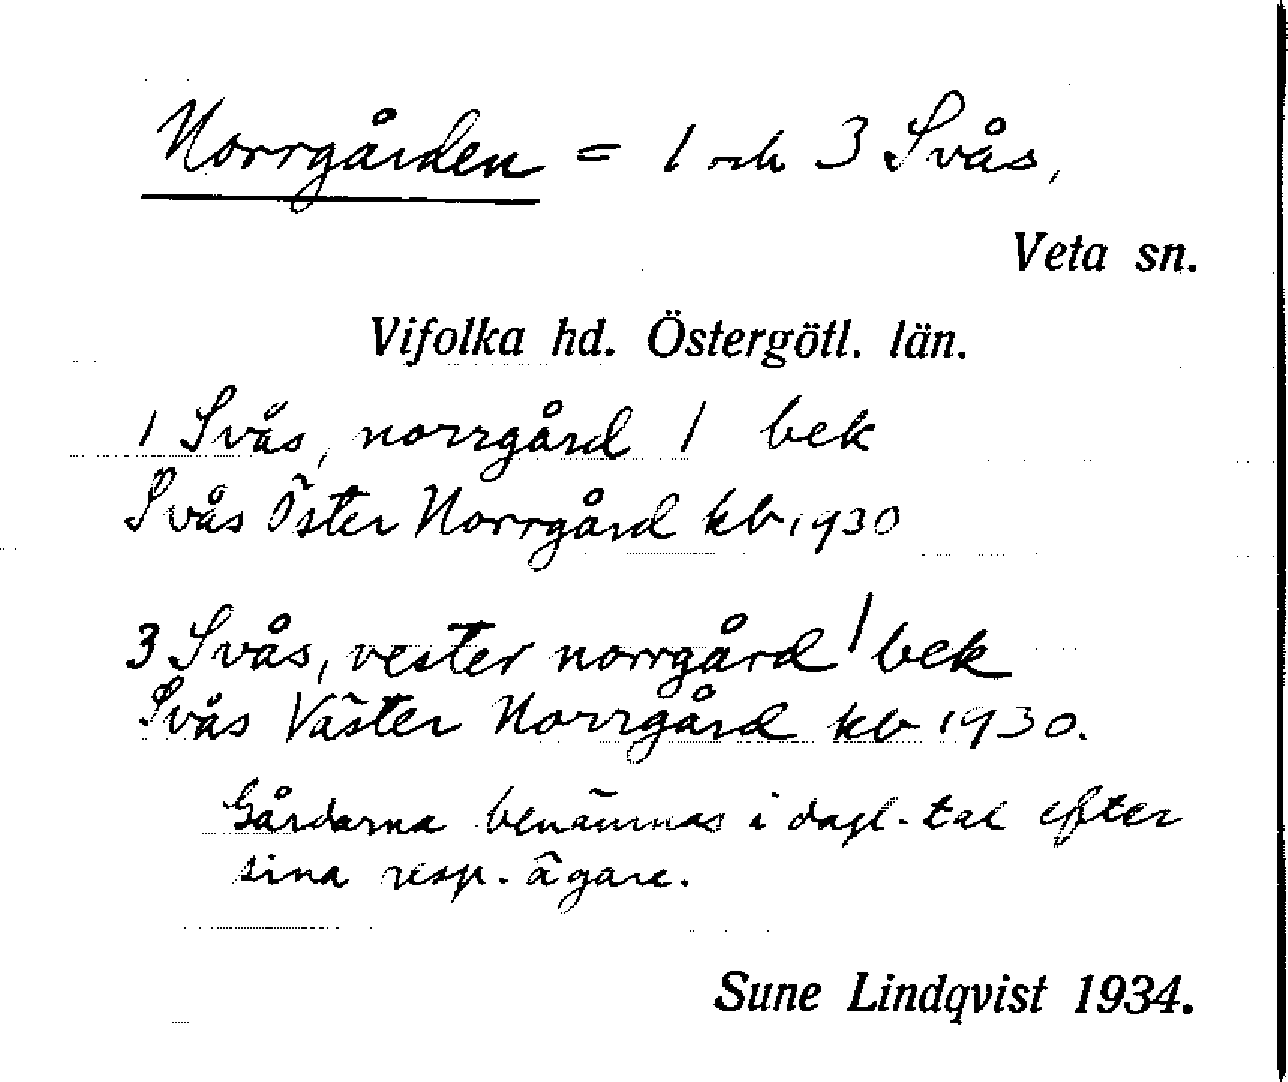 Norrgården = 1 och 3 Svås,
Veta sn.
Vifolka hd. Östergötl. län.
1 Svås, norrgård 1 bek
Svås Öster Norrgård kb. 1930
3 Svås, vester norrgård 1 bek
Svås Väster Norrgård kb 1930.
Gårdarna benämnas i dagl. tal efter
sina resp. ägare.
Sune Lindqvist 1934.